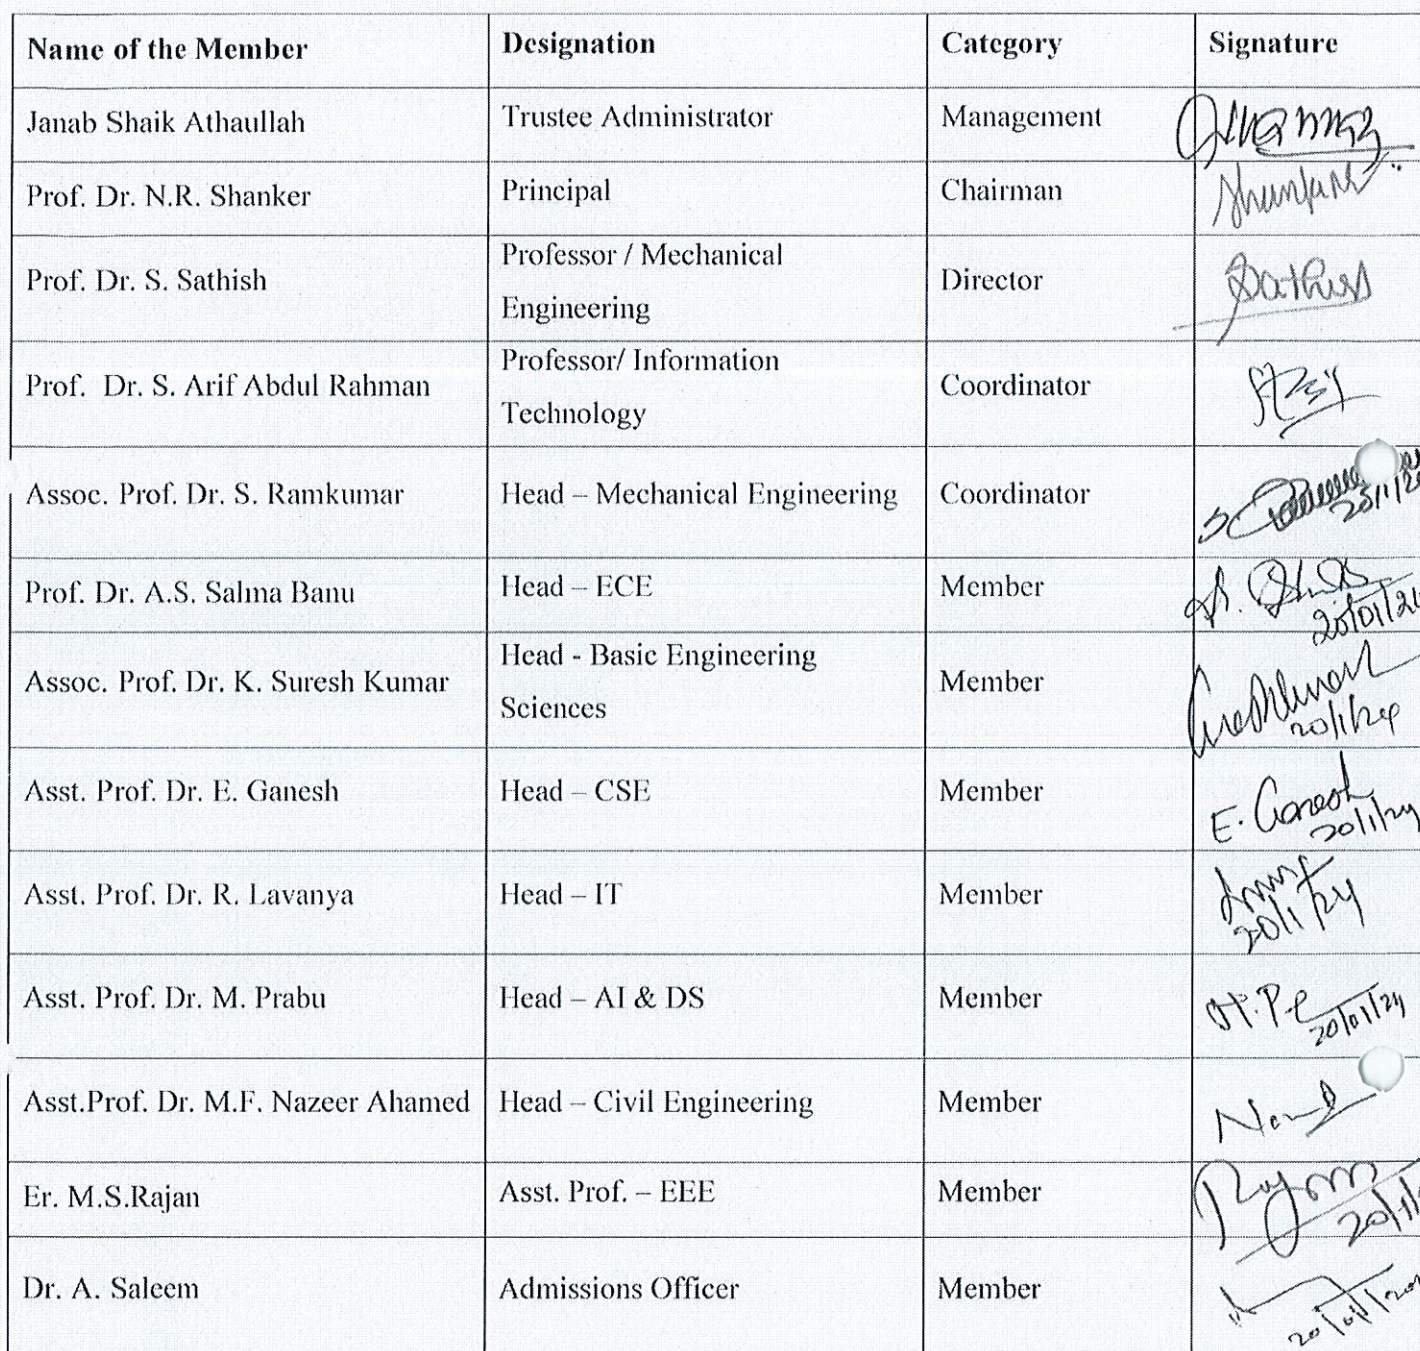 Name of the Member Designation Category Signature
Janab Shaik Athaullah Trustee Administrator Management
Prof. Dr. N.R. Shanker Principal Chairman
Prof. Dr. S. Sathish Professor / Mechanical Director Sathish
Engineering
Prof. Dr. S. Arif Abdul Rahman Professor/ Information Coordinator
Technology
Assoc. Prof. Dr. S. Ramkumar Head – Mechanical Engineering Coordinator
Prof. Dr. A.S. Salma Banu Head – ECE Member
20/01/24
Head - Basic Engineering
Assoc. Prof. Dr. K. Suresh Kumar Member
Sciences
20/1/24
Asst. Prof. Dr. E. Ganesh Head – CSE Member E. Ganesh
20/1/24
Asst. Prof. Dr. R. Lavanya Head – IT Member
20/1/24
Asst. Prof. Dr. M. Prabu Head – AI & DS Member
20/01/24
Asst.Prof. Dr. M.F. Nazeer Ahamed Head – Civil Engineering Member
Er. M.S.Rajan Asst. Prof. – EEE Member
Dr. A. Saleem Admissions Officer Member